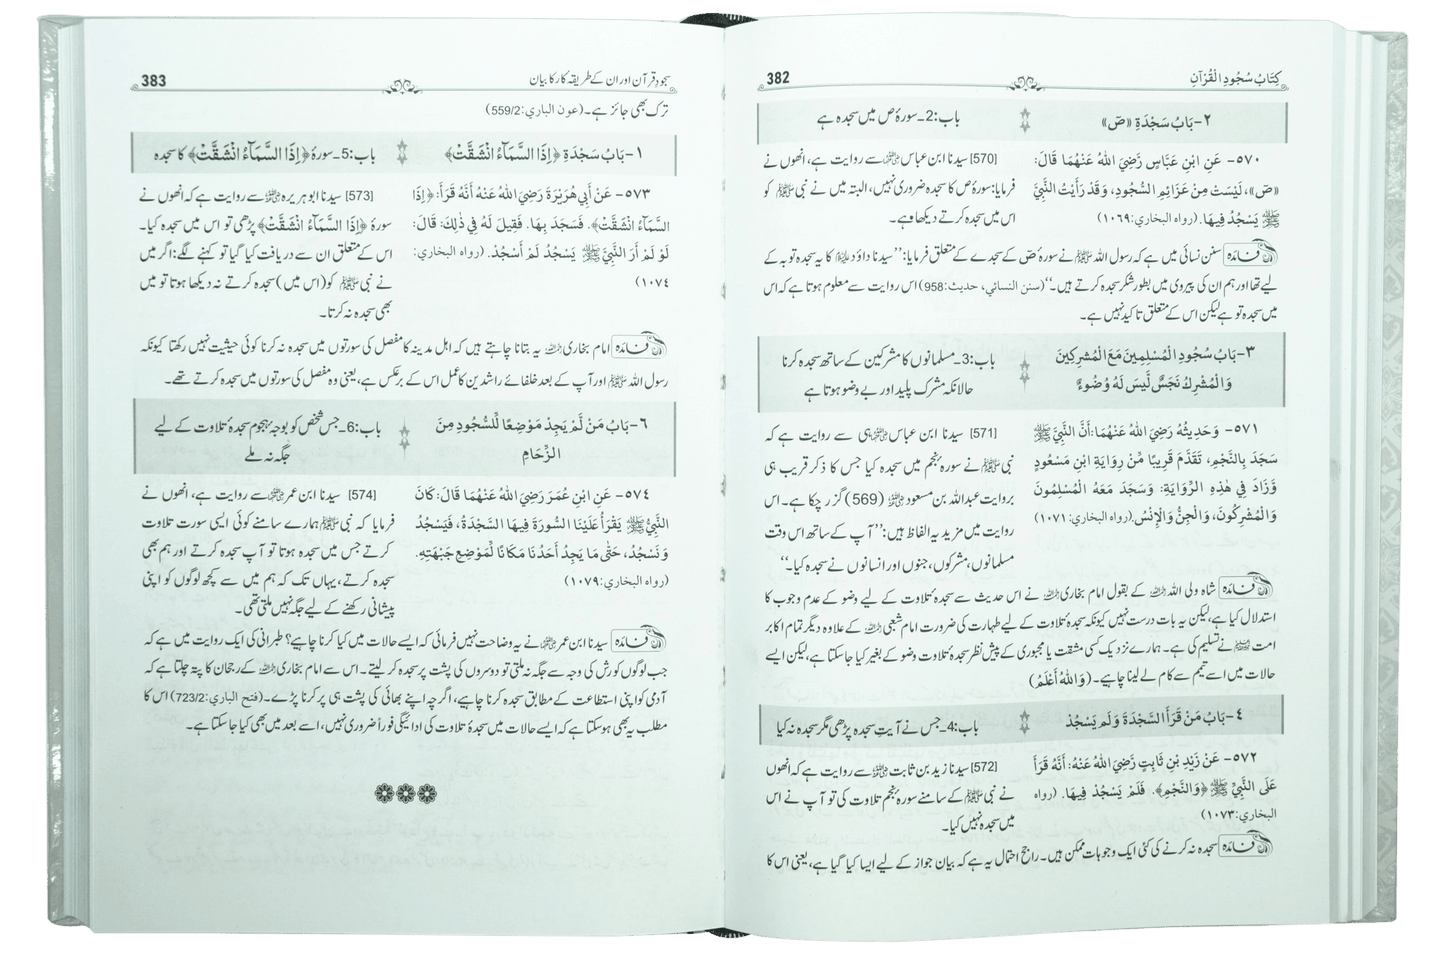 382
كِتَابُ سُجُودِ الْقُرْآنِ
٢- بَابُ سَجْدَةِ «صَ»
باب:2۔ سورۂ ص میں سجدہ ہے
٥٧٠- عَنِ ابْنِ عَبَّاسٍ رَضِيَ اللهُ عَنْهُمَا قَالَ:
«صَ»، لَيْسَتْ مِنْ عَزَائِمِ السُّجُودِ، وَقَدْ رَأَيْتُ النَّبِيَّ
ﷺ يَسْجُدُ فِيهَا. (رواه البخاري: ١٠٦٩)
[570] سیدنا ابن عباس رضی اللہ عنہما سے روایت ہے، انھوں نے
فرمایا: سورۂ ص کا سجدہ ضروری نہیں، البتہ میں نے نبی ﷺ کو
اس میں سجدہ کرتے دیکھا ہے۔
فائدہ سنن نسائی میں ہے کہ رسول اللہ ﷺ نے سورۂ صٓ کے سجدے کے متعلق فرمایا: ’’سیدنا داؤد علیہ السلام کا یہ سجدہ توبہ کے
لیے تھا اور ہم ان کی پیروی میں بطور شکر سجدہ کرتے ہیں۔‘‘ (سنن النسائي، حديث: 958) اس روایت سے معلوم ہوتا ہے کہ اس
میں سجدہ تو ہے لیکن اس کے متعلق تاکید نہیں ہے۔
٣- بَابُ سُجُودِ الْمُسْلِمِينَ مَعَ الْمُشْرِكِينَ
وَالْمُشْرِكُ نَجَسٌ لَّيْسَ لَهُ وُضُوءٌ
باب:3۔ مسلمانوں کا مشرکین کے ساتھ سجدہ کرنا
حالانکہ مشرک پلید اور بے وضو ہوتا ہے
٥٧١- وَحَدِيثُهُ رَضِيَ اللهُ عَنْهُمَا: أَنَّ النَّبِيَّ ﷺ
سَجَدَ بِالنَّجْمِ، تَقَدَّمَ قَرِيبًا مِّنْ رِوَايَةِ ابْنِ مَسْعُودٍ
وَزَادَ فِي هٰذِهِ الرِّوَايَةِ: وَسَجَدَ مَعَهُ الْمُسْلِمُونَ
وَالْمُشْرِكُونَ، وَالْجِنُّ وَالْإِنْسُ. (رواه البخاري: ١٠٧١)
[571] سیدنا ابن عباس رضی اللہ عنہما ہی سے روایت ہے کہ
نبی ﷺ نے سورۂ نجم میں سجدہ کیا جس کا ذکر قریب ہی
بروایت عبداللہ بن مسعود رضی اللہ عنہ (569) گزر چکا ہے۔ اس
روایت میں مزید یہ الفاظ ہیں: ’’آپ کے ساتھ اس وقت
مسلمانوں، مشرکوں، جنوں اور انسانوں نے سجدہ کیا۔‘‘
فائدہ شاہ ولی اللہ رحمہ اللہ کے بقول امام بخاری رحمہ اللہ نے اس حدیث سے سجدۂ تلاوت کے لیے وضو کے عدم وجوب کا
استدلال کیا ہے، لیکن یہ بات درست نہیں کیونکہ سجدۂ تلاوت کے لیے طہارت کی ضرورت امام شعبی رحمہ اللہ کے علاوہ دیگر تمام اکابر
امت نے تسلیم کی ہے۔ ہمارے نزدیک کسی مشقت یا مجبوری کے پیش نظر سجدۂ تلاوت وضو کے بغیر کیا جا سکتا ہے، لیکن ایسے
حالات میں اسے تیمم سے کام لے لینا چاہیے۔ (وَاللهُ أَعْلَمُ)
٤- بَابُ مَنْ قَرَأَ السَّجْدَةَ وَلَمْ يَسْجُدْ
باب:4۔ جس نے آیتِ سجدہ پڑھی مگر سجدہ نہ کیا
٥٧٢- عَنْ زَيْدِ بْنِ ثَابِتٍ رَّضِيَ اللهُ عَنْهُ: أَنَّهُ قَرَأَ
عَلَى النَّبِيِّ ﷺ ﴿وَالنَّجْمِ﴾. فَلَمْ يَسْجُدْ فِيهَا. (رواه
البخاري: ١٠٧٣)
[572] سیدنا زید بن ثابت رضی اللہ عنہ سے روایت ہے کہ انھوں
نے نبی ﷺ کے سامنے سورۂ نجم تلاوت کی تو آپ نے اس
میں سجدہ نہیں کیا۔
فائدہ سجدہ نہ کرنے کی کئی ایک وجوہات ممکن ہیں۔ راجح احتمال یہ ہے کہ بیان جواز کے لیے ایسا کیا گیا ہے، یعنی اس کا
سجودِ قرآن اور ان کے طریقہ کار کا بیان
383
ترک بھی جائز ہے۔ (عون الباري: 559/2)
١- بَابُ سَجْدَةِ ﴿إِذَا السَّمَاءُ انْشَقَّتْ﴾
باب:5۔ سورۂ ﴿إِذَا السَّمَاءُ انْشَقَّتْ﴾ کا سجدہ
٥٧٣- عَنْ أَبِي هُرَيْرَةَ رَضِيَ اللهُ عَنْهُ أَنَّهُ قَرَأَ: ﴿إِذَا
السَّمَاءُ انْشَقَّتْ﴾. فَسَجَدَ بِهَا. فَقِيلَ لَهُ فِي ذٰلِكَ: قَالَ:
لَوْ لَمْ أَرَ النَّبِيَّ ﷺ يَسْجُدُ لَمْ أَسْجُدْ. (رواه البخاري:
١٠٧٤)
[573] سیدنا ابو ہریرہ رضی اللہ عنہ سے روایت ہے کہ انھوں نے
سورۂ ﴿إِذَا السَّمَاءُ انْشَقَّتْ﴾ پڑھی تو اس میں سجدہ کیا۔
اس کے متعلق ان سے دریافت کیا گیا تو کہنے لگے: اگر میں
نے نبی ﷺ کو (اس میں) سجدہ کرتے نہ دیکھا ہوتا تو میں
بھی سجدہ نہ کرتا۔
فائدہ امام بخاری رحمہ اللہ یہ بتانا چاہتے ہیں کہ اہل مدینہ کا مفصل کی سورتوں میں سجدہ نہ کرنا کوئی حیثیت نہیں رکھتا کیونکہ
رسول اللہ ﷺ اور آپ کے بعد خلفائے راشدین کا عمل اس کے برعکس ہے، یعنی وہ مفصل کی سورتوں میں سجدہ کرتے تھے۔
٦- بَابُ مَنْ لَّمْ يَجِدْ مَوْضِعًا لِّلسُّجُودِ مِنَ
الزِّحَامِ
باب:6۔ جس شخص کو بوجہ ہجوم سجدۂ تلاوت کے لیے
جگہ نہ ملے
٥٧٤- عَنِ ابْنِ عُمَرَ رَضِيَ اللهُ عَنْهُمَا قَالَ: كَانَ
النَّبِيُّ ﷺ يَقْرَأُ عَلَيْنَا السُّورَةَ فِيهَا السَّجْدَةُ، فَيَسْجُدُ
وَنَسْجُدُ، حَتّٰى مَا يَجِدُ أَحَدُنَا مَكَانًا لِّمَوْضِعِ جَبْهَتِهِ.
(رواه البخاري: ١٠٧٩)
[574] سیدنا ابن عمر رضی اللہ عنہما سے روایت ہے، انھوں نے
فرمایا کہ نبی ﷺ ہمارے سامنے کوئی ایسی سورت تلاوت
کرتے جس میں سجدہ ہوتا تو آپ سجدہ کرتے اور ہم بھی
سجدہ کرتے، یہاں تک کہ ہم میں سے کچھ لوگوں کو اپنی
پیشانی رکھنے کے لیے جگہ نہیں ملتی تھی۔
فائدہ سیدنا ابن عمر رضی اللہ عنہما نے یہ وضاحت نہیں فرمائی کہ ایسے حالات میں کیا کرنا چاہیے؟ طبرانی کی ایک روایت میں ہے کہ
جب لوگوں کو رش کی وجہ سے جگہ نہ ملتی تو دوسروں کی پشت پر سجدہ کر لیتے۔ اس سے امام بخاری رحمہ اللہ کے رجحان کا پتہ چلتا ہے کہ
آدمی کو اپنی استطاعت کے مطابق سجدہ کرنا چاہیے، اگرچہ اپنے بھائی کی پشت ہی پر کرنا پڑے۔ (فتح الباري: 723/2) اس کا
مطلب یہ بھی ہو سکتا ہے کہ ایسے حالات میں سجدۂ تلاوت کی ادائیگی فوراً ضروری نہیں، اسے بعد میں بھی کیا جا سکتا ہے۔